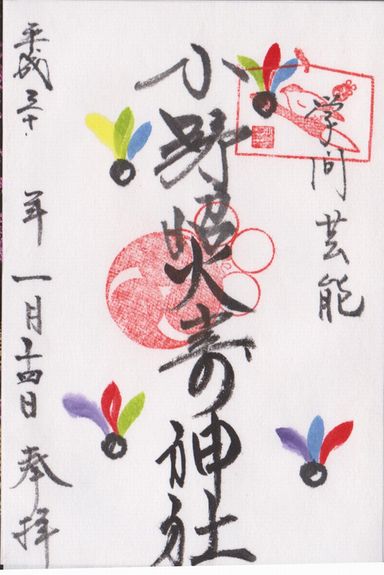 学問芸能
小野照崎神社
平成三十年一月二十四日奉拝